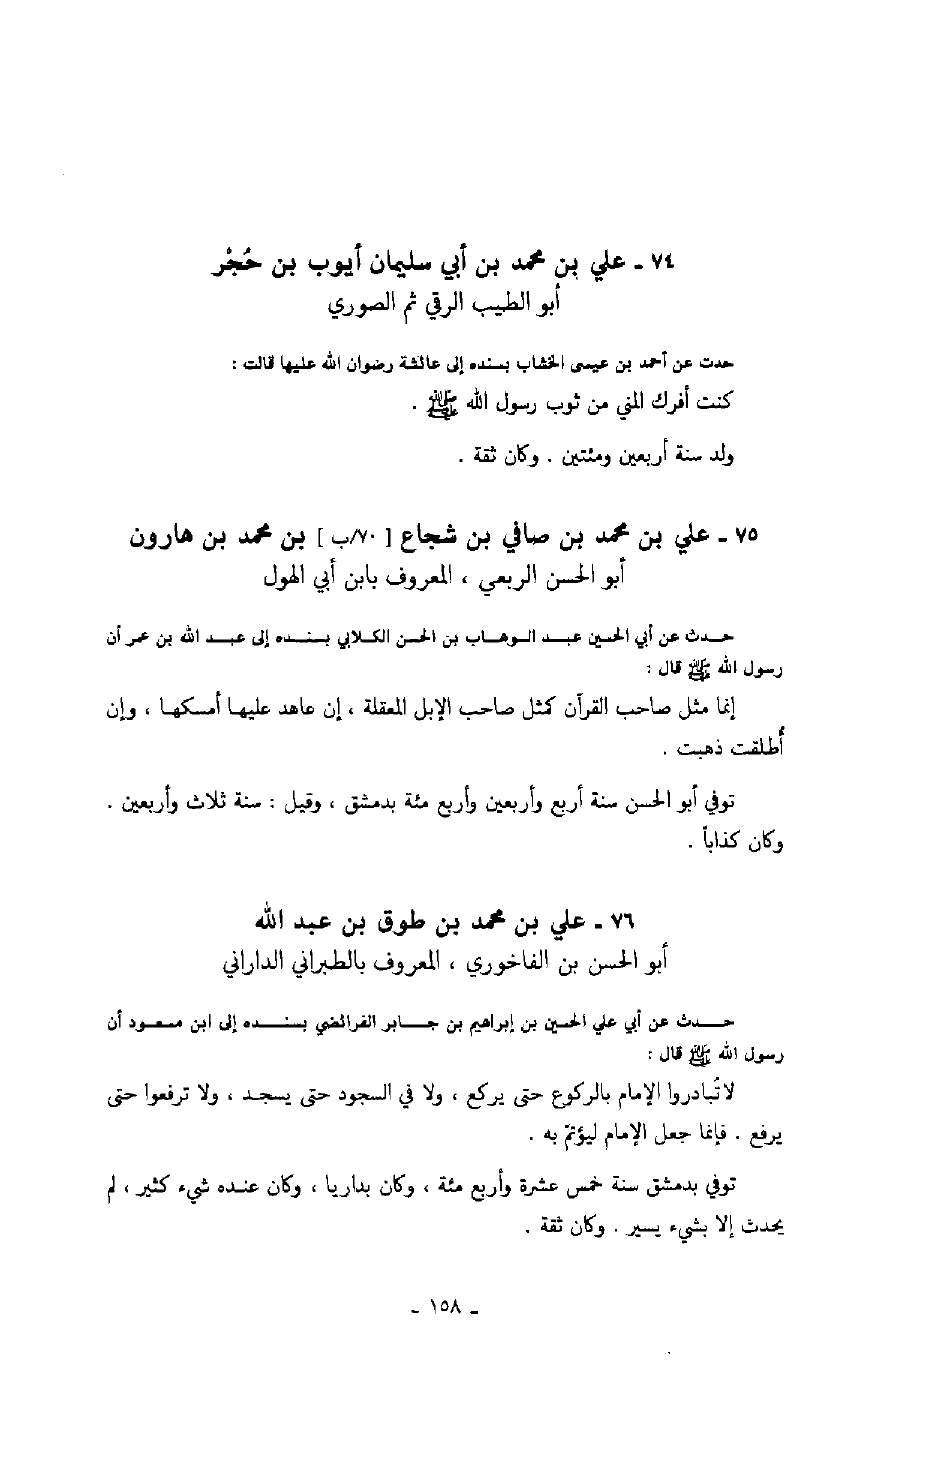 ٧٤ ـ علي بن محمد بن أبي سليمان أيوب بن حُجْر
أبو الطيب الرقي ثم الصوري
حدث عن أحمد بن عيسى الخشاب بسنده إلى عائشة رضوان الله عليها قالت :
كنت أفرك المني من ثوب رسول الله ﷺ .
ولد سنة أربعين ومئتين . وكان ثقة .
٧٥ ـ علي بن محمد بن صافي بن شجاع [ ٧٠/ب ] بن محمد بن هارون
أبو الحسن الربعي ، المعروف بابن أبي الهول
حدث عن أبي الحسين عبد الوهاب بن الحسن الكلابي بسنده إلى عبد الله بن عمر أن
رسول الله ﷺ قال :
إنما مثل صاحب القرآن كمثل صاحب الإبل المعقلة ، إن عاهد عليها أمسكها ، وإن
أُطلقت ذهبت .
توفي أبو الحسن سنة أربع وأربعين وأربع مئة بدمشق ، وقيل : سنة ثلاث وأربعين .
وكان كذاباً .
٧٦ ـ علي بن محمد بن طوق بن عبد الله
أبو الحسن بن الفاخوري ، المعروف بالطبراني الداراني
حدث عن أبي علي الحسين بن إبراهيم بن جابر الفرائضي بسنده إلى ابن مسعود أن
رسول الله ﷺ قال :
لا تُبادروا الإمام بالركوع حتى يركع ، ولا في السجود حتى يسجد ، ولا ترفعوا حتى
يرفع . فإنما جعل الإمام ليؤتمّ به .
توفي بدمشق سنة خمس عشرة وأربع مئة ، وكان بداريا ، وكان عنده شيء كثير ، لم
يحدث إلا بشيء يسير . وكان ثقة .
ـ ١٥٨ ـ